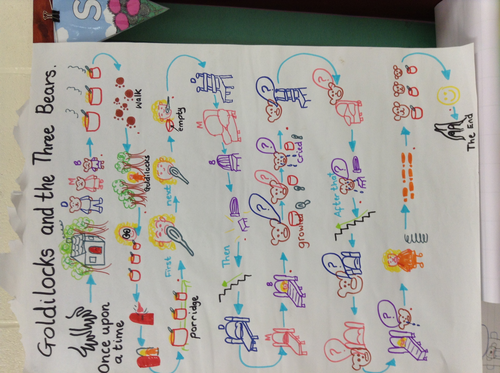 Goldilocks and the Three Bears.
Once upon
a time
D M B
walk
Goldilocks
First
next
porridge
empty
M
B
Then
growled
cried
After that
The End